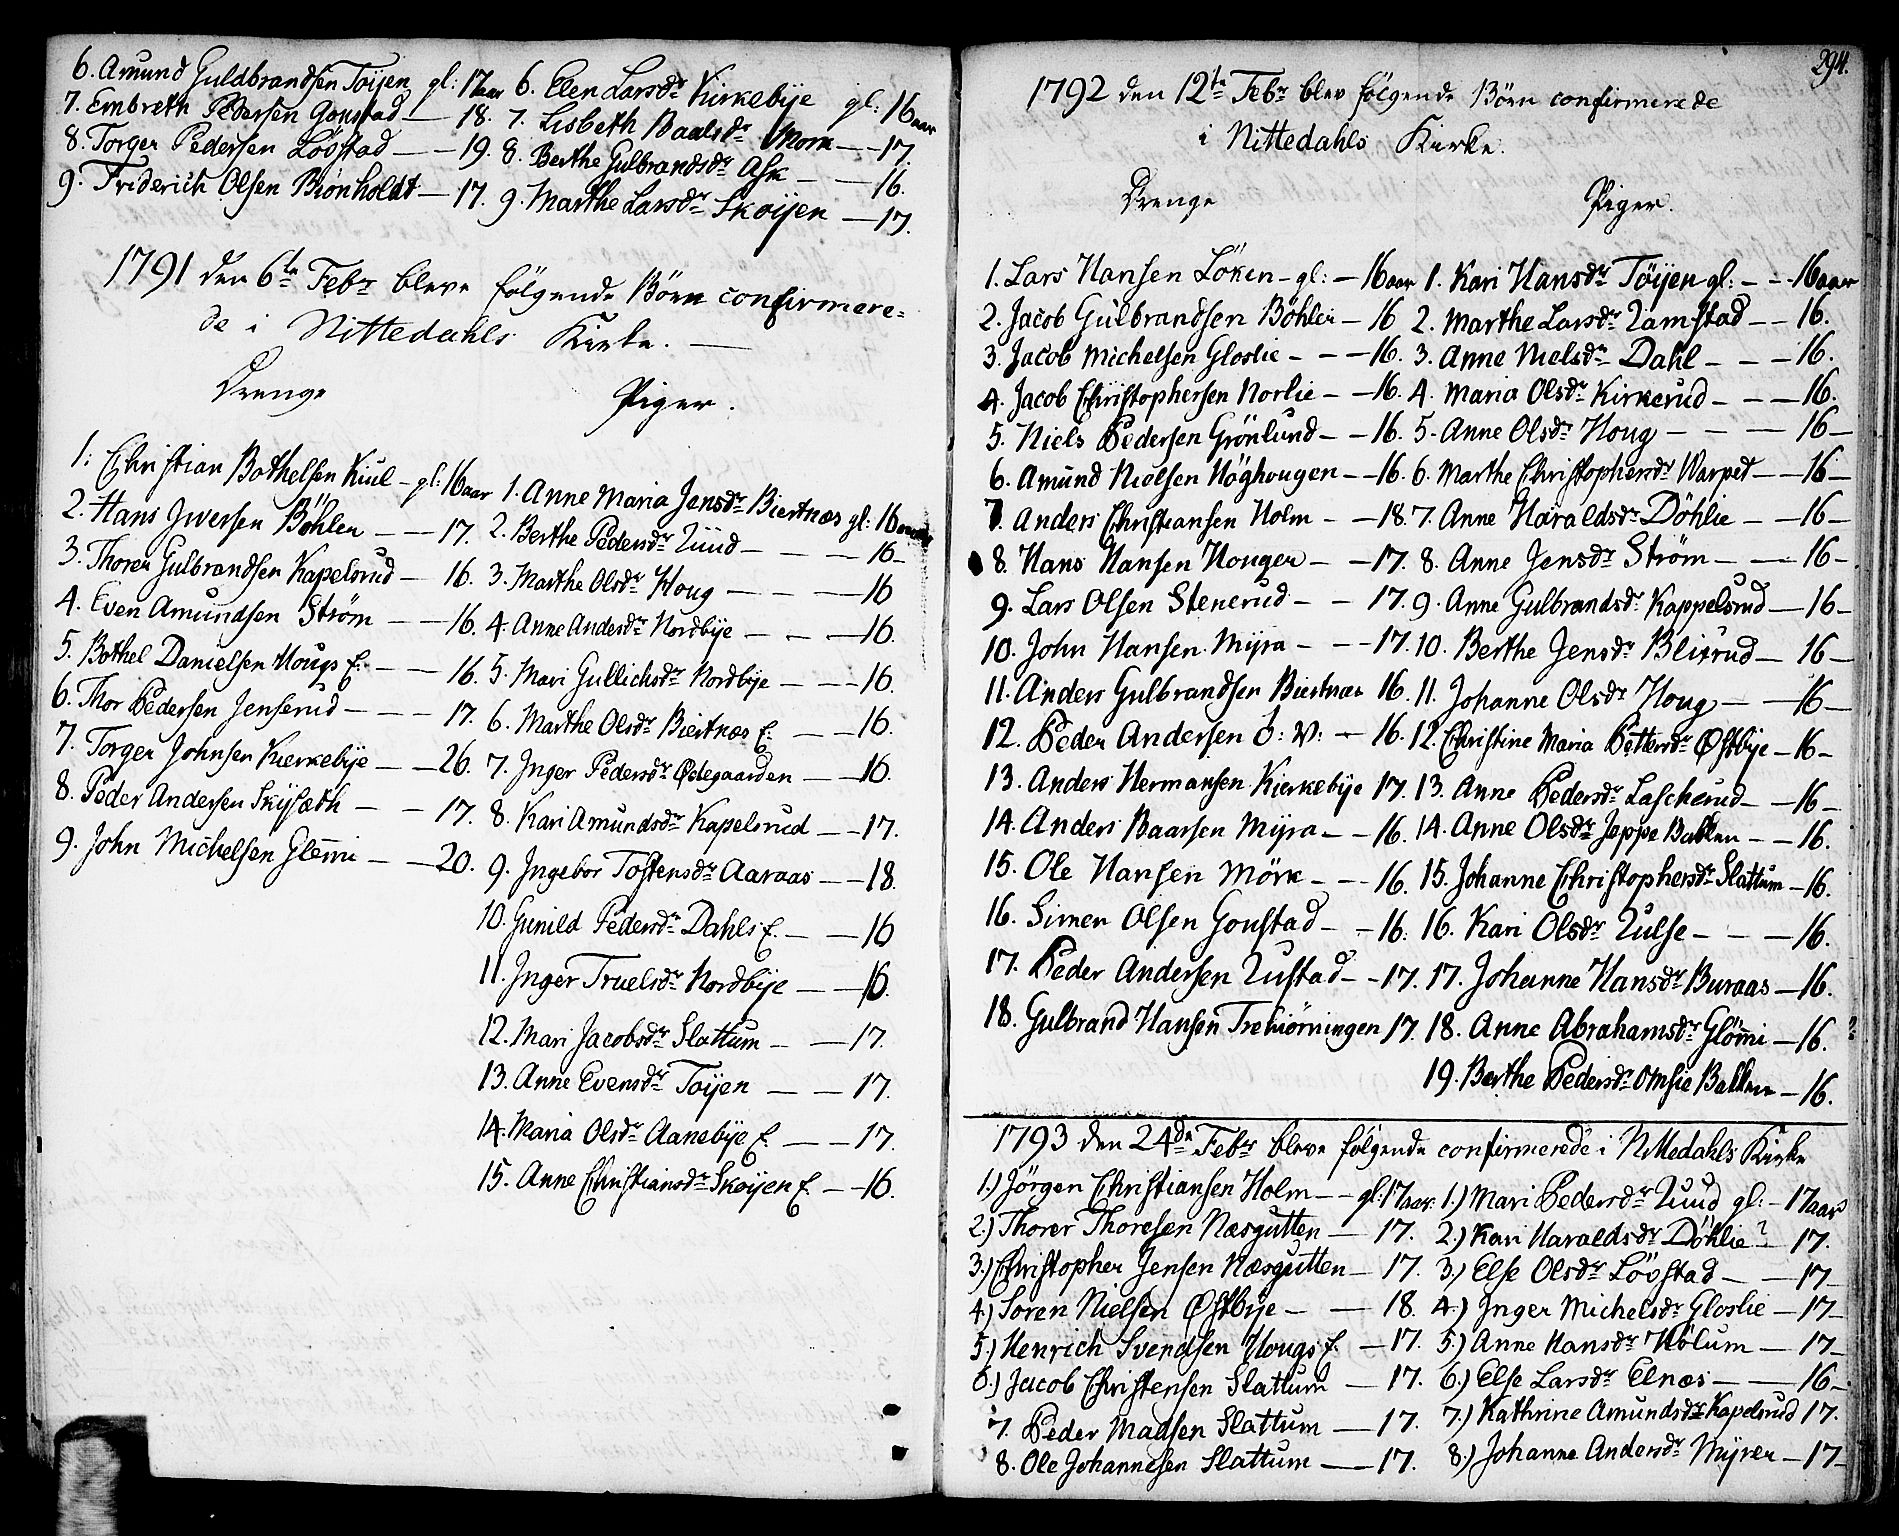 6. Amund Guldbrandsen Toijen gl: 17 aar
7. Embreth Pedersen Gonstad — 18.
8. Torger Pedersen Lövstad — — 19.
9. Friderich Olsen Biönholdt — 17.
6. Elen Larsdr Kirkebije gl: 16 aar
7. Lisbeth Baalsdr Mork — — 17.
8. Berthe Gulbrandsdr Ask — — 16.
9. Marthe Larsdr Skoijen — 17.
1791 den 6te Febr bleve fölgende Börn confirmere=
de i Nittedahls Kirke. —
Drenge
1. Christian Bothelsen Kiul — gl: 16 aar
2. Hans Iwersen Böhler — — 17.
3. Thorer Gulbrandsen Kapelsrud — 16.
4. Even Amundsen Ström — — 16.
5. Bothel Danielsen Hougs E. — — 16.
6. Thor Pedersen Jenserud — — — 17.
7. Torger Johnsen Kierkebije — — 26.
8. Peder Andersen Skijsæth — — 17.
9. John Michelsen Glemi — — 20.
Piger.
1. Anne Maria Jensdr Biertnæs gl: 16
2. Berthe Pedersdr Ruud — — — 16 —
3. Marthe Olsdr Houg — — — 16
4. Anne Andersdr Nordbije — — — 16.
5. Mari Gullichsdr Nordbije — — 16.
6. Marthe Olsdr Biertnæs E. — — 16.
7. Inger Pedersdr Ødegaarden — — 16.
8. Kari Amundsdr Kapelsrud — — 17.
9. Ingebor Tostensdr Aaraas — — 18.
10. Gunild Pedersdr Dahls E. — — 16
11. Inger Truelsdr Nordbije — — 16.
12. Mari Jacobsdr Slattum — — 17.
13. Anne Evensdr Toijen — — 17.
14. Maria Olsdr Aanebije E. — — 17.
15. Anne Christiansdr Skoijen E. — — 16.
294.
1792 den 12te Febr blev fölgende Börn confirmerede
i Nittedahls Kirke.
Drenge
1. Lars Hansen Löken — gl: — 16 aar
2. Jacob Gulbrandsen Böhler — 16
3. Jacob Michelsen Gloslie — — — 16.
4. Jacob Christophersen Norlie — — 16.
5. Niels Pedersen Grönlund — — 16.
6. Amund Nielsen Höghougen — — 16.
7. Anders Christiansen Holm — — 18.
8. Hans Hansen Houger — — 17.
9. Lars Olsen Stenerud — — 17.
10. John Hansen Mijra — — — 17.
11. Anders Gulbrandsen Biertnæs 16.
12. Peder Andersen — 16.
13. Anders Hermansen Kierkebije 17.
14. Anders Baarsen Mijra — — 16.
15. Ole Hansen Mörk — — — 16.
16. Simen Olsen Gonstad — — 16.
17. Peder Andersen Rustad — — 17.
18. Gulbrand Hansen Trekiörningen 17.
Piger.
1. Kari Hansdr Töijen gl: — — 16 aar
2. Marthe Larsdr Ramstad — — 16.
3. Anne Nielsdr Dahl — — — 16.
4. Maria Olsdr Kirkerud — — — 16.
5. Anne Olsdr Houg — — — 16 —
6. Marthe Christophersdr Warpet — — 16 —
7. Anne Haraldsdr Döhlie — — 16 —
8. Anne Jensdr Ström — — — 16 —
9. Anne Gulbrandsdr Kappelsrud — 16 —
10. Berthe Jensdr Blixrud — 16 —
11. Johanne Olsdr Houg — — 16 —
12. Christine Maria Pettersdr Østbije — 16 —
13. Anne Pedersdr Lascherud — — 16 —
14. Anne Olsdr Jeppe Bakken — — 16.
15. Johanne Christophersdr Slattum — 16.
16. Kari Olsdr Rulse — — — 16.
17. Johanne Hansdr Buraas — 16.
18. Anne Abrahamsdr Glömi — 16.
19. Berthe Pedersdr Omsie Bakken — 16.
1793 den 24de Febr bleve fölgende confirmerede i Nittedahls Kirke
1.) Jörgen Christiansen Holm — — gl: 17 aar.
2.) Thorer Thoresen Næsgutten — 17.
3.) Christopher Jensen Næsgutten — 17.
4.) Soren Nielsen Østbije — — 18.
5.) Henrich Svendsen Hougs E. — 17.
6.) Jacob Christensen Slattum — 17.
7. Peder Madsen Slattum — 17.
8. Ole Johannesen Slattum — 17.
1.) Mari Pedersdr Ruud gl: — 17 aar
2.) Kari Haraldsdr Döhlie? — 17.
3.) Else Olsdr Lövstad — — 17 —
4.) Inger Michelsdr Gloslie — 17 —
5.) Anne Hansdr Hölum — 17 —
6.) Else Larsdr Elnæs — — 16 —
7.) Kathrine Amundsdr Kapelsrud 17.
8.) Johanne Andersdr Mijrer — 17 —